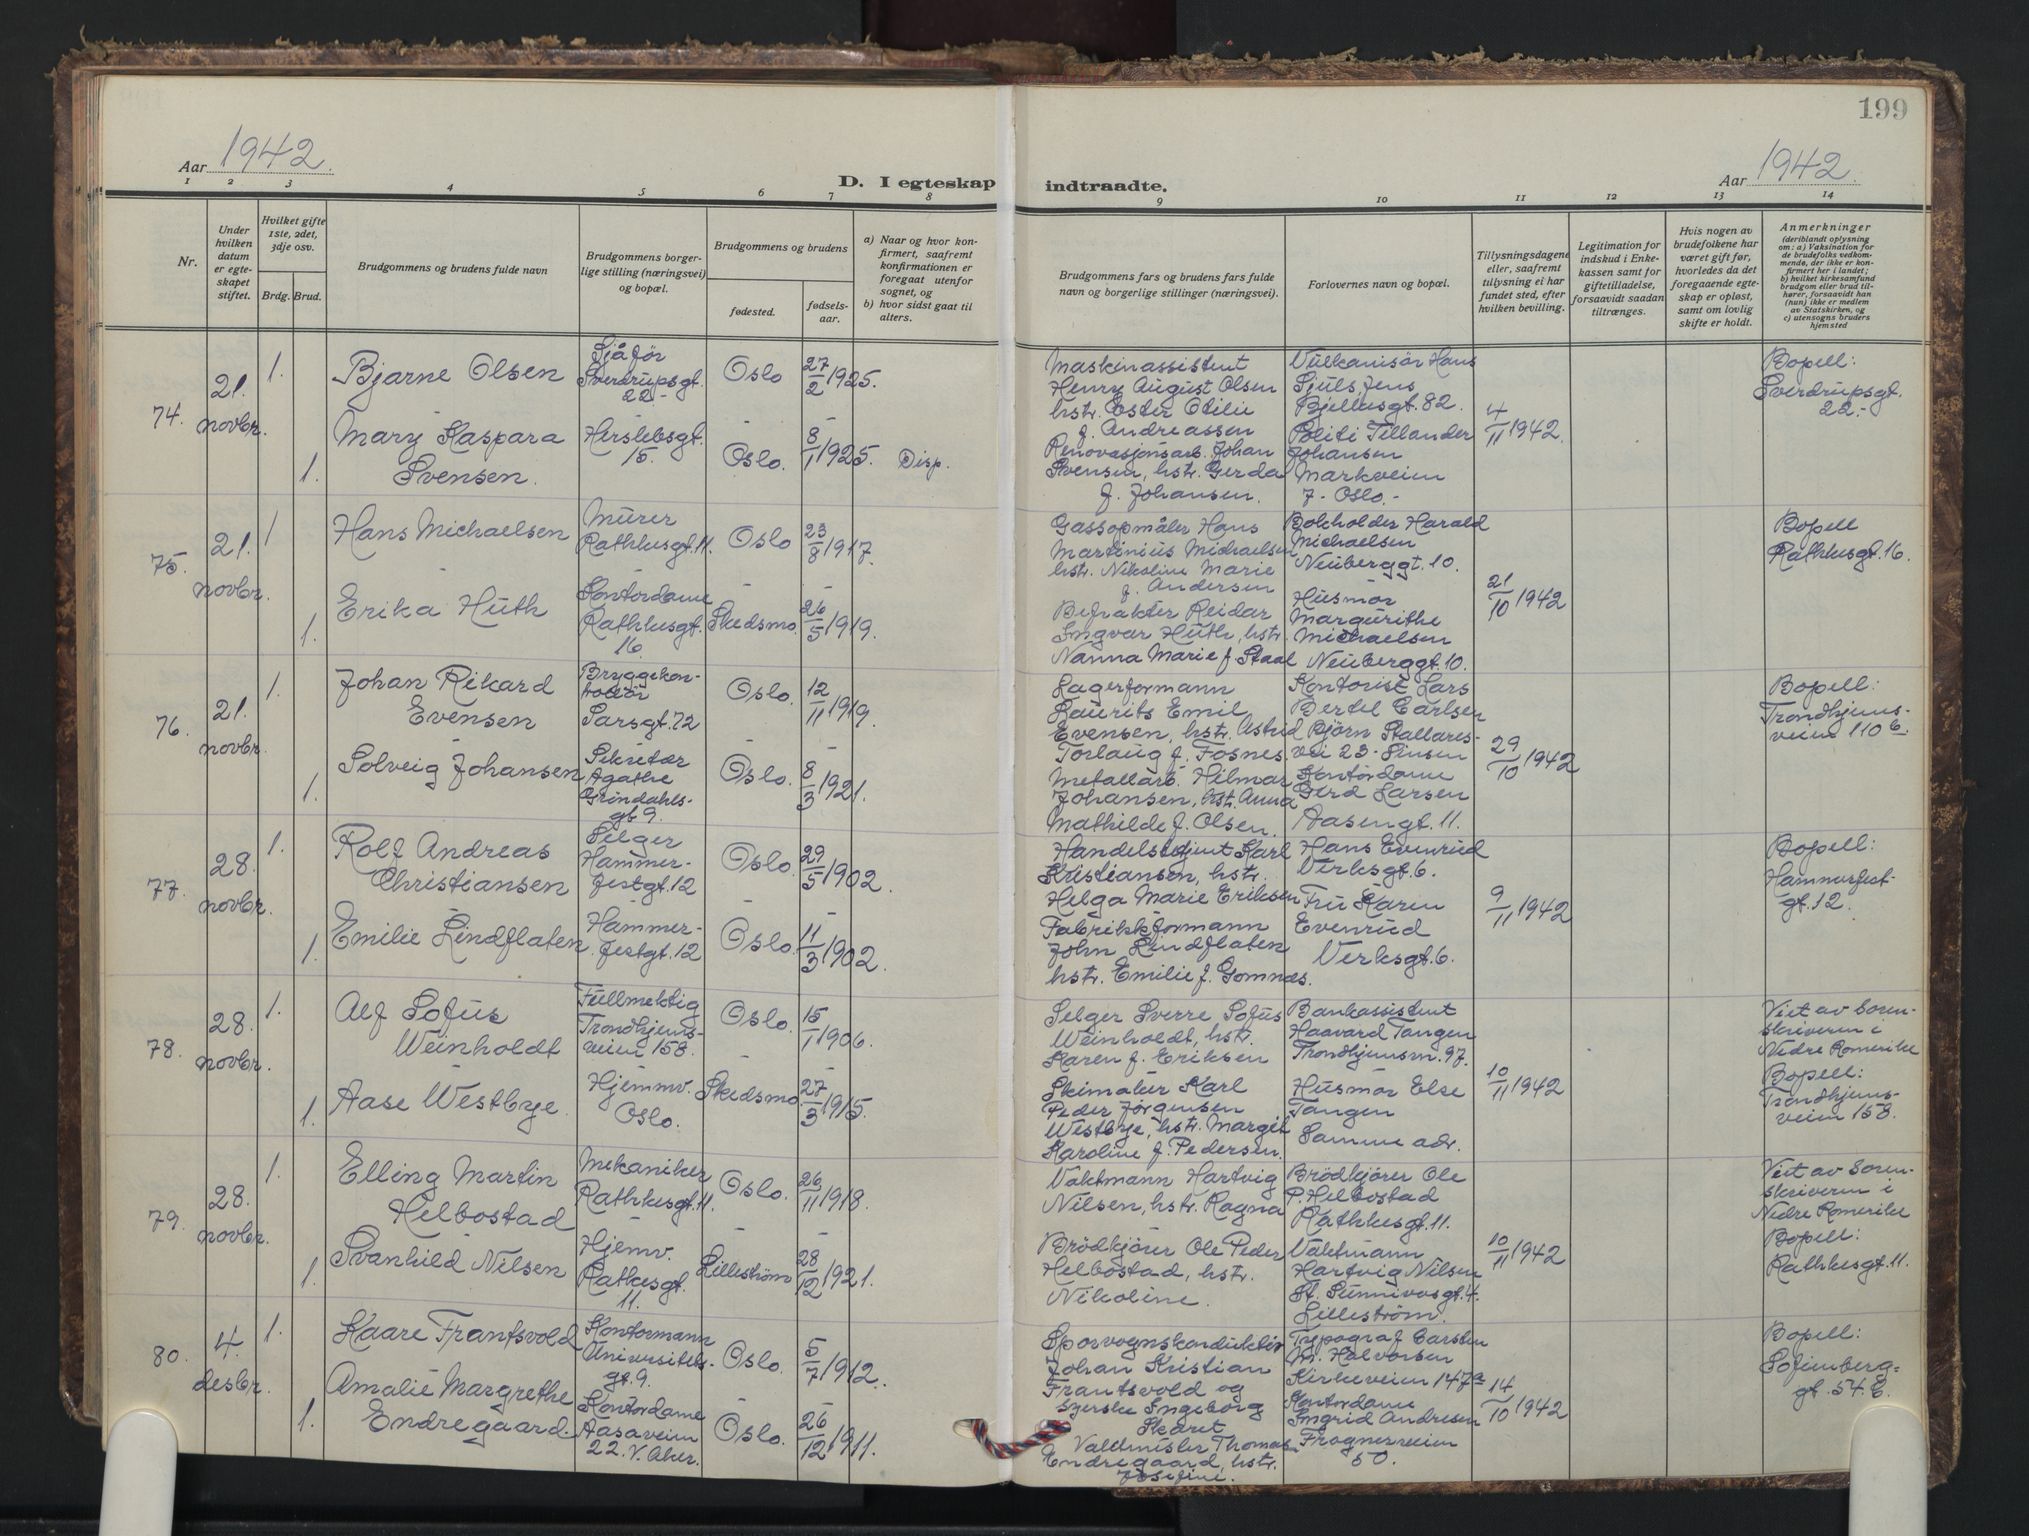 199
Aar 1942.
D. I egteskap indtraadte.
Aar 1942.
1 2 3 4 5 6 7 8 9 10 11 12 13 14
Nr.
Under hvilken datum er egteskapet stiftet.
Hvilket gifte 1ste, 2det, 3dje osv.
Brdg. Brud.
Brudgommens og brudens fulde navn
Brudgommens borgerlige stilling (næringsvei) og bopæl.
Brudgommens og brudens
fødested.
fødselsaar.
a) Naar og hvor konfirmert, saafremt konfirmationen er foregaat utenfor sognet, og
b) hvor sidst gaat til alters.
Brudgommens fars og brudens fars fulde navn og borgerlige stillinger (næringsvei).
Forlovernes navn og bopæl.
Tillysningsdagene eller, saafremt tillysning ei har fundet sted, efter hvilken bevilling.
Legitimation for indskud i Enkekassen samt for giftetilladelse, forsaavidt saadan tiltrænges.
Hvis nogen av brudefolkene har været gift før, hvorledes da det foregaaende egteskap er opløst, samt om lovlig skifte er holdt.
Anmerkninger
(deriblandt oplysning om: a) Vaksination for de brudefolks vedkommende, der ikke er konfirmert her i landet; b) hvilket kirkesamfund brudgom eller brud tilhører, forsaavidt han (hun) ikke er medlem av Statskirken, og c) utensogns bruders hjemsted
74.
21. novbr.
1.
Bjarne Olsen
Sjåfør
Sverdrupsgt.
22.-
Oslo
27/2 1925.
1.
Mary Kaspara
Svensen.
Herslebsgt.
15.
Oslo.
8/1 1925.
Disp.
Maskinassistent
Henry August Olsen
hstr. Ester Otilie
f. Andreassen
Renovasjonsarb. Johan
Svensen, hstr. Gerda
f. Johansen.
Vulkanisør Hans
Sjuls Jens
Bjellesgt. 82.
Politi Tellander
Johansen
Markveien
7. Oslo.-
4/11 1942.
Bopell:
Sverdrupsgt.
22.-
75.
21. novbr.
1
Hans Michaelsen
Murer
Rathkesgt. 11.
Oslo
23/8 1917.
1.
Erika Huth
Kontordame
Rathkesgt.
16.
Skedsmo.
26/5 1919.
Gassopmåler Hans
Martinius Michaelsen
hstr. Nikoline Marie
f. Andersen
Befrakter Reidar
Ingvar Huth, hstr.
Nanna Marie f. Staal
Bokholder Harald
Michaelsen
Neuberggt. 10.
Husmor
Margurithe
Michaelsen
Neuberggt. 10.
21/10 1942
Bopell
Rathkesgt. 16.
76.
21. novbr.
1.
Johan Rikard
Evensen
Bryggekontrollør
Sarsgt. 72
Oslo.
12/11 1919.
1.
Solveig Johansen
Sekretær
Agathe
Grøndahls-
gt 9.
Oslo.
8/3 1921.
Lagerformann
Laurits Emil
Evensen, hstr. Astrid
Torlaug f. Fosnes.
Metallarb. Hilmar
Johansen, hst. Anna
Mathilde f. Olsen.
Kontorist Lars
Bertel Carlsen
Bjørn Stallares-
vei 23 - Sinsen
Kontordame
Gerd Larsen
Aasengt. 11.
29/10 1942
Bopell:
Trondhjems-
veien 110 b.
77.
28. novbr.
1.
Rolf Andreas
Christiansen
Selger
Hammer-
festgt. 12
Oslo
29/5 1902.
1.
Emilie Lindflaten
Hammer-
festgt. 12
Oslo
11/3 1902.
Handelsbetjent Karl
Kristiansen, hstr.
Helga Marie Eriksen
Fabrikkformann
John Lindflaten
hstr. Emilie f. Gomnæs.
Hans Evenrud
Verksgt. 6.
Fru Karen
Evenrud
Verksgt. 6.
9/11 1942
Bopell:
Hammerfest-
gt. 12.
78.
28. novbr.
1.
Alf Sofus
Weinholdt
Fullmektig
Trondhjems-
veien 158.
Oslo.
15/1 1906.
1.
Aase Westbye.
Hjemmv.
Oslo.
Skedsmo
27/3 1915.
Selger Sverre Sofus
Weinholdt, hstr.
Karen f. Eriksen
Skimaker Karl
Peder Jörgensen
Westbye, hstr. Margit
Karoline f. Pedersen.
Bankassistent
Haavard Tangen
Trondhjemsvn. 97.
Husmor Else
Tangen
Samme adr.
10/11 1942
Viet av Soren-
skriveren i
Nedre Romerike
Bopell:
Trondhjems-
veien 158.
79.
28. novbr.
1.
Elling Martin
Helbostad
Mekaniker
Rathkesgt. 11.
Oslo.
26/11 1918.
1.
Svanhild Nilsen
Hjemv.
Ratkesgt.
11.
Lillestrøm
28/12 1921.
Vaktmann Hartvig
Nilsen, hstr. Ragna
Brödkjörer Ole Peder
Helbostad, hstr.
Nikoline.
Brödkjörer Ole
P. Helbostad
Rathkesgt. 11.
Vaktmann
Hartvig Nilsen
St. Sunnivasgt. 4.
Lilleström.
10/11 1942
Viet av Soren-
skriveren i
Nedre Romerike
Bopell:
Rathkesgt. 11.
80.
4. desbr.
1.
Kaare Frantsvold
Kontormann
Universitets-
gt. 9.
Oslo.
5/7 1912.
1.
Amalie Margrethe
Endregaard.
Kontordame
Aasaveien
22. V. Aker.
Oslo.
26/12 1911.
Sporvognskonduktør
Johan Kristian
Frantsvold og
syerske Ingeborg
Skaret
Vaktmester Thomas
Endregaard, hstr.
Josefine.
Typograf Carsten
M. Halvorsen
Kirkeveien 147a
Kontordame
Ingrid Andresen
Frognerveien
50.
14/10 1942
Bopell:
Sofienberg-
gt. 54. C.